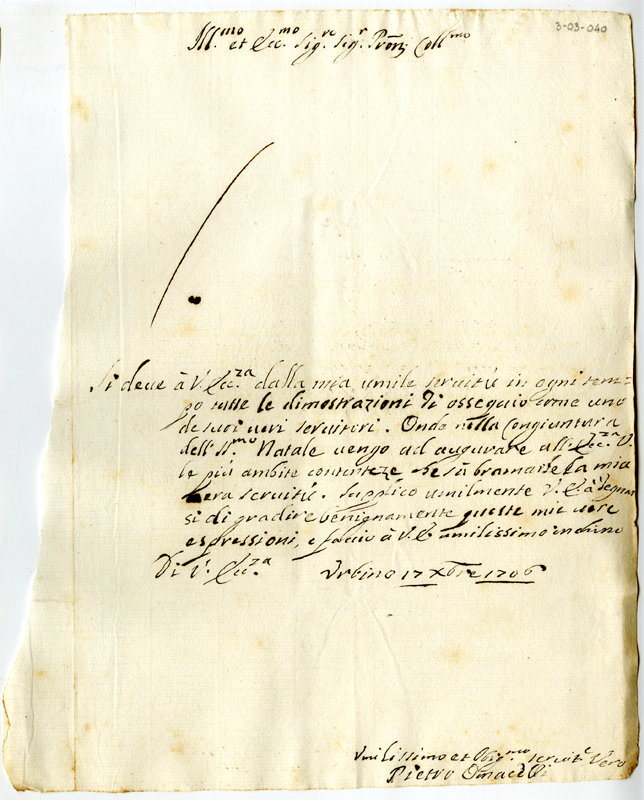 3-03-040
Ill.mo et Ecc.mo Sig.re Sig.r Prōn Coll.mo
Si deue à V. Ecc.za dalla mia umile seruitù in ogni tem=
po tutte le dimostrazioni di ossequio come uno
de suoi ueri seruitori. Onde nella Congiuntura
dell' S.mo Natale uengo ad augurare all' Ecc.za V.
le più ambite contentezze che sù bramarle la mia
uera seruitù. Supplico umilmente V. E. à degnar
si di gradire benignamente queste mie uere
espressioni, e faccio à V. E. umilissimo inchino
Di V. Ecc.za Urbino 17 Xbre 1706
Vmilissimo et Obg.mo seruit.e Vero
Pietro